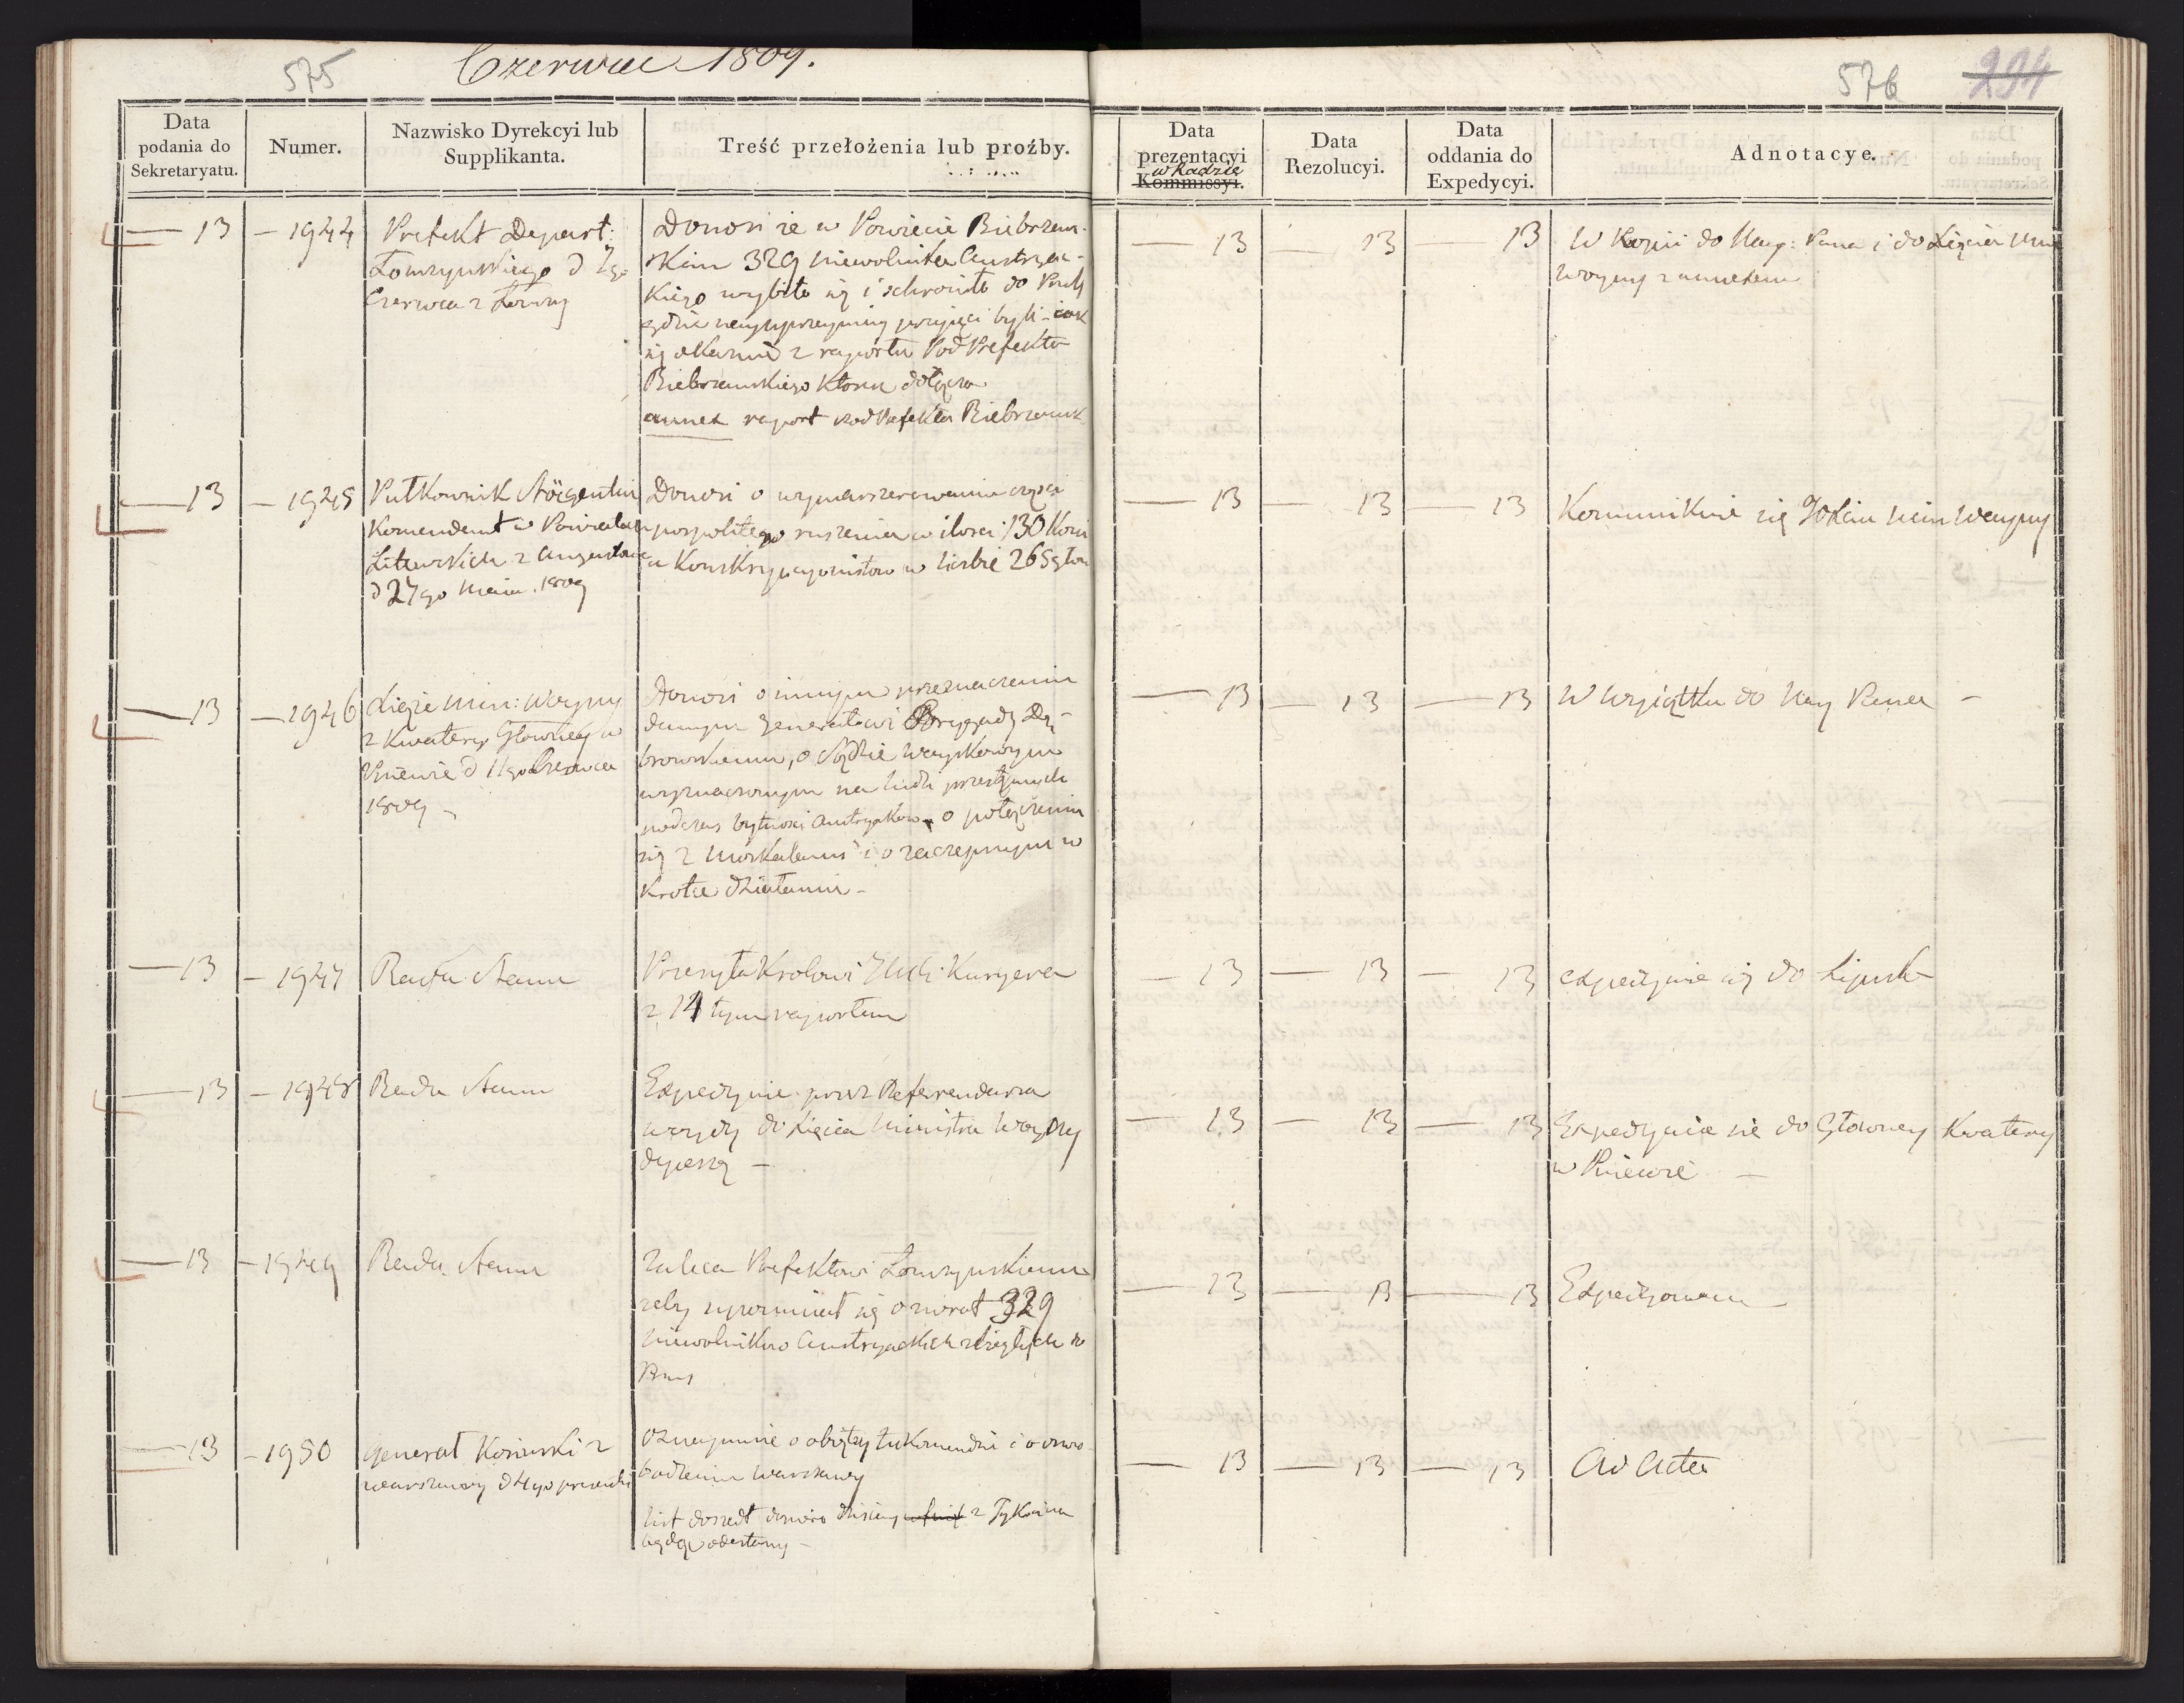 575
Czerwiec 1809.
576
294
Data podania do Sekretaryatu.
Numer.
Nazwisko Dyrekcyi lub Supplikanta.
Treść przełożenia lub proźby.
Data prezentacyi Kommissyi.
w Radzie
Data Rezolucyi.
Data oddania do Expedycyi.
Adnotacye.
13 — 1944
Prefekt Depart:
Łomżynskiego d
Czerwca z Łomży
Donosi że w Powiecie Biebrzans-
kim 329 niewolnika Austryac-
kiego wybiło się i schroniło do Prus
gdzie nayuprzeymiey przyięci byli - iak
się okazuie z raportu Pod Prefekta
Biebrzanskiego ktoren dołącza
annex raport Pod Prefekta Biebrzansk
— 13 — 13 — 13
W Kopii do Nayj: Pana i do Xięcia Min
Woyny z annexem
13 — 1945
Pułkownik
Komendant w Powiatach
Litewskich z Augustowa
d 27go Maia 1809
Donosi o wymaszerowaniu części
pospolitego ruszenia w ilosci 130 koni
a Konskrypcyonistow w liczbie 265 głow
— 13 — 13 — 13
Kommunikuie się JO Xciu Min Woyny
13 — 1946
Xiąże Min: Woyny
z Kwatery Głowney w
Pniewie d 11go Czerwca
1809 —
Donosi o innym przeznaczeniu
danym Generałowi Brygady Dą-
browskiemu, o Sądzie Woyskowym
wyznaczonym na ludzi przestępnych
podczas bytnosci Austryakow o połączeniu
się z Moskalami i o zaczepnym w
krotce działaniu —
— 13 — 13 — 13
W wyiątku do Nay Pana —
13 — 1947
Rada Stanu
Przesyła Krolowi JMci Kuryera
z 14tym raportem
— 13 — 13 — 13
expedyuie się do Lipska
13 — 1948
Rada Stanu
Expedyuie przez Referendarza
do Xięcia Ministra Woyny
depeszę —
— 13 — 13 — 13
Expedyuie się do Głowney Kwatery
w Pniewie —
13 — 1949
Rada Stanu
Zaleca Prefektowi Łomżynskiemu
zeby upomniał się o zwrot 329
Niewolnikow Austryackich zbiegłych do
Prus
— 13 — 13 — 13
Expedyowano
13 — 1950
Generał Kosinski z
Warszawy d 4go
Oznaymuie o obiętey tu Komendzie i o oswo-
bodzeniu Warszawy
list doszedł dopiero dzisiay z Tykocina
będąc odesłany —
— 13 — 13 — 13
Ad Acta